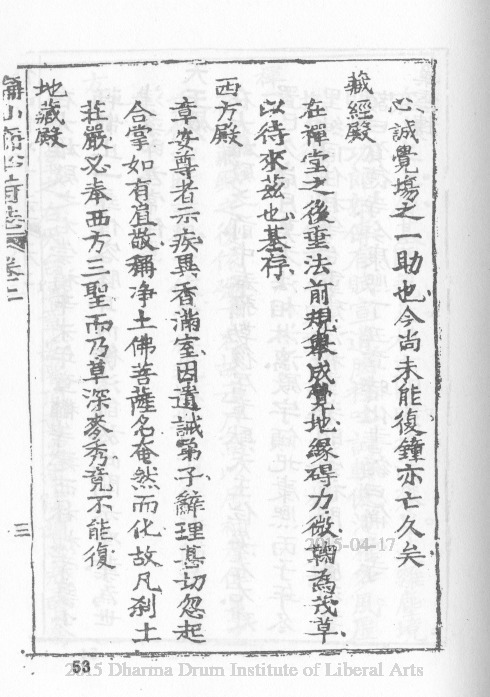 心誠覺場之一助也今尚未能復鐘亦亡久矣
藏經殿
在禪堂之後垂法前規舉成覺地緣碍力微鞠為茂草
以待來茲也基存
西方殿
章安尊者示疾異香滿室因遺誡弟子辭理甚切忽起
合掌如有宜敬稱净土佛菩薩名奄然而化故凡剎土
莊嚴必奉西方三聖而乃草深麥秀竟不能復
地藏殿
卷二
三
2015-04-17
53
2015 Dharma Drum Institute of Liberal Arts